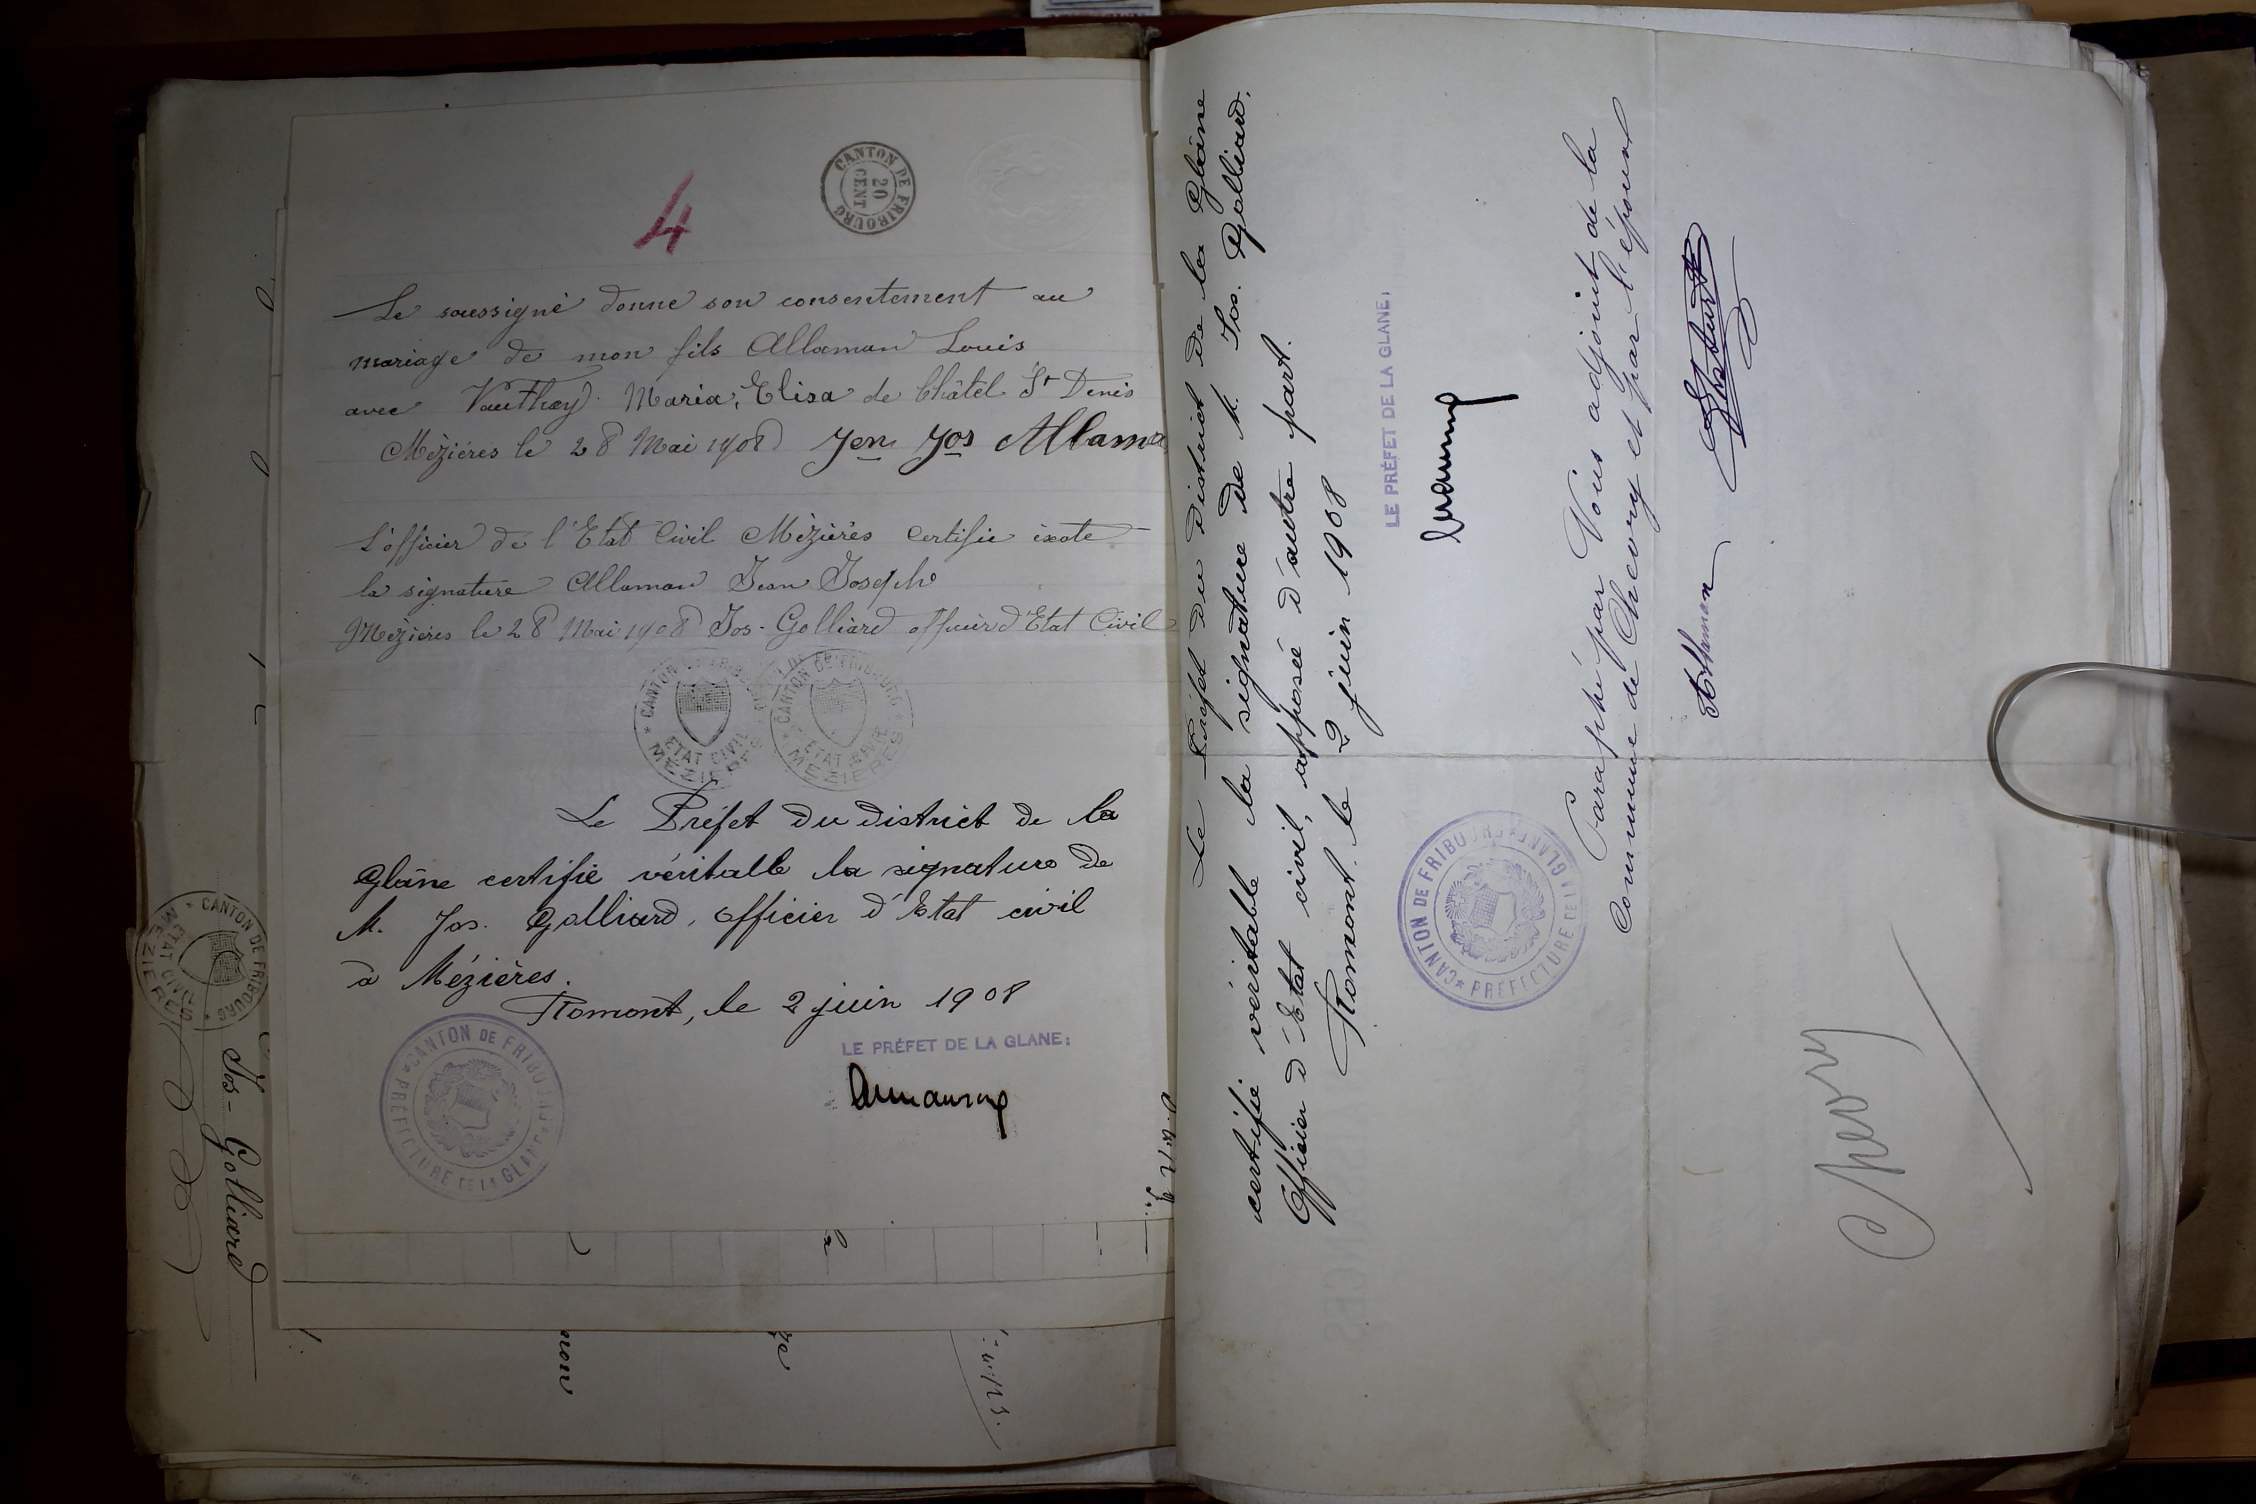 4
CANTON DE FRIBOURG
20
CENT
Le soussigné donne son consentement au
mariage de mon fils Allaman Louis
avec Vauthey Maria, Elisa de Châtel St Denis
Mézières le 28 Mai 1908 Jen Jos Allama
L'officier de l'Etat Civil Mézières certifie exate
la signature Allaman Jean Joseph
Mézières le 28 Mai 1908 Jos- Golliard officier d'Etat Civil
CANTON DE FRIBOURG
ETAT CIVIL
MEZIERES
CANTON DE FRIBOURG
ETAT CIVIL
MEZIERES
Le Préfet du district de la
Glâne certifie véritable la signature de
M. Jos. Golliard, officier d'Etat civil
à Mézières.
Romont, le 2 juin 1908
LE PRÉFET DE LA GLANE:
CANTON DE FRIBOURG
PRÉFECTURE DE LA GLANE
CANTON DE FRIBOURG
ETAT CIVIL
MEZIERES
Jos- Golliard
Le Préfet du district de la Glâne
certifie véritable la signature de M. Jos. Golliard,
Officier d'Etat civil, apposée d'autre part.
Romont le 2 juin 1908
LE PRÉFET DE LA GLANE:
CANTON DE FRIBOURG
PRÉFECTURE DE LA GLANE
Paraphé par Nous adjoint de la
Commune de Chevry et par l'épouse
Allaman
Chevry